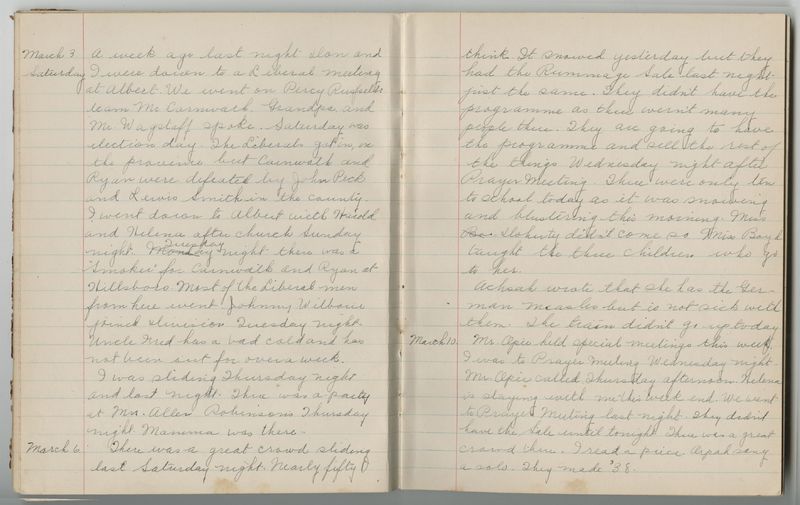 March 3 A week ago last night Don and
Saturday I were down to a Liberal meeting
at Albert. We went on Percy Russell's
team Mr. Carnwack, Grandpa, and
Mr. Wagstaff spoke. Saturday was
election day. The Liberals got in, in
the province but Carnwath and
Ryan were defeated by John Peck
and Lewis Smith in the county.
I went down to Albert with Harold
and Helena after church Sunday
night. Monday Tuesday night there was a
"Smoker" for Carnwath and Ryan at
Hillsboro. Most of the Liberal men
from here went. Johnny Wilbur
joined Division Tuesday night.
Uncle Fred has a bad cold and has
not been out for over a week.
I was sliding Thursday night
and last night. There was a party
at Mrs. Allen Robinsons Thursday
night Mamma was there.
March 6. There was a great crowd sliding
last Saturday night. Nearly fifty I
think. It snowed yesterday but they
had the Rummage Sale last night
just the same. They didn't have the
programme as there wern't many
people there. They are going to have
the programme and sell the rest of
the things Wednesday night after
Prayer Meeting. There were only ten
to school today as it was snowing
and blustering this morning. Miss
Doherty didn't come so Miss Boyd
taught the three children who go
to her.
Achsah wrote that she has the Ger-
man measles but is not sick with
them. The train didn't go up today
March 10. Mr. Opie held special meetings this week.
I was to Prayer Meeting Wednesday night.
Mr. Opie called Thursday afternoon. Helena
is staying with me this week end. We went
to Prayer Meeting last night. They didn't
have the Sale until tonight. There was a great
crowd there. I read a piece Orpah sang
a solo. They made $38.